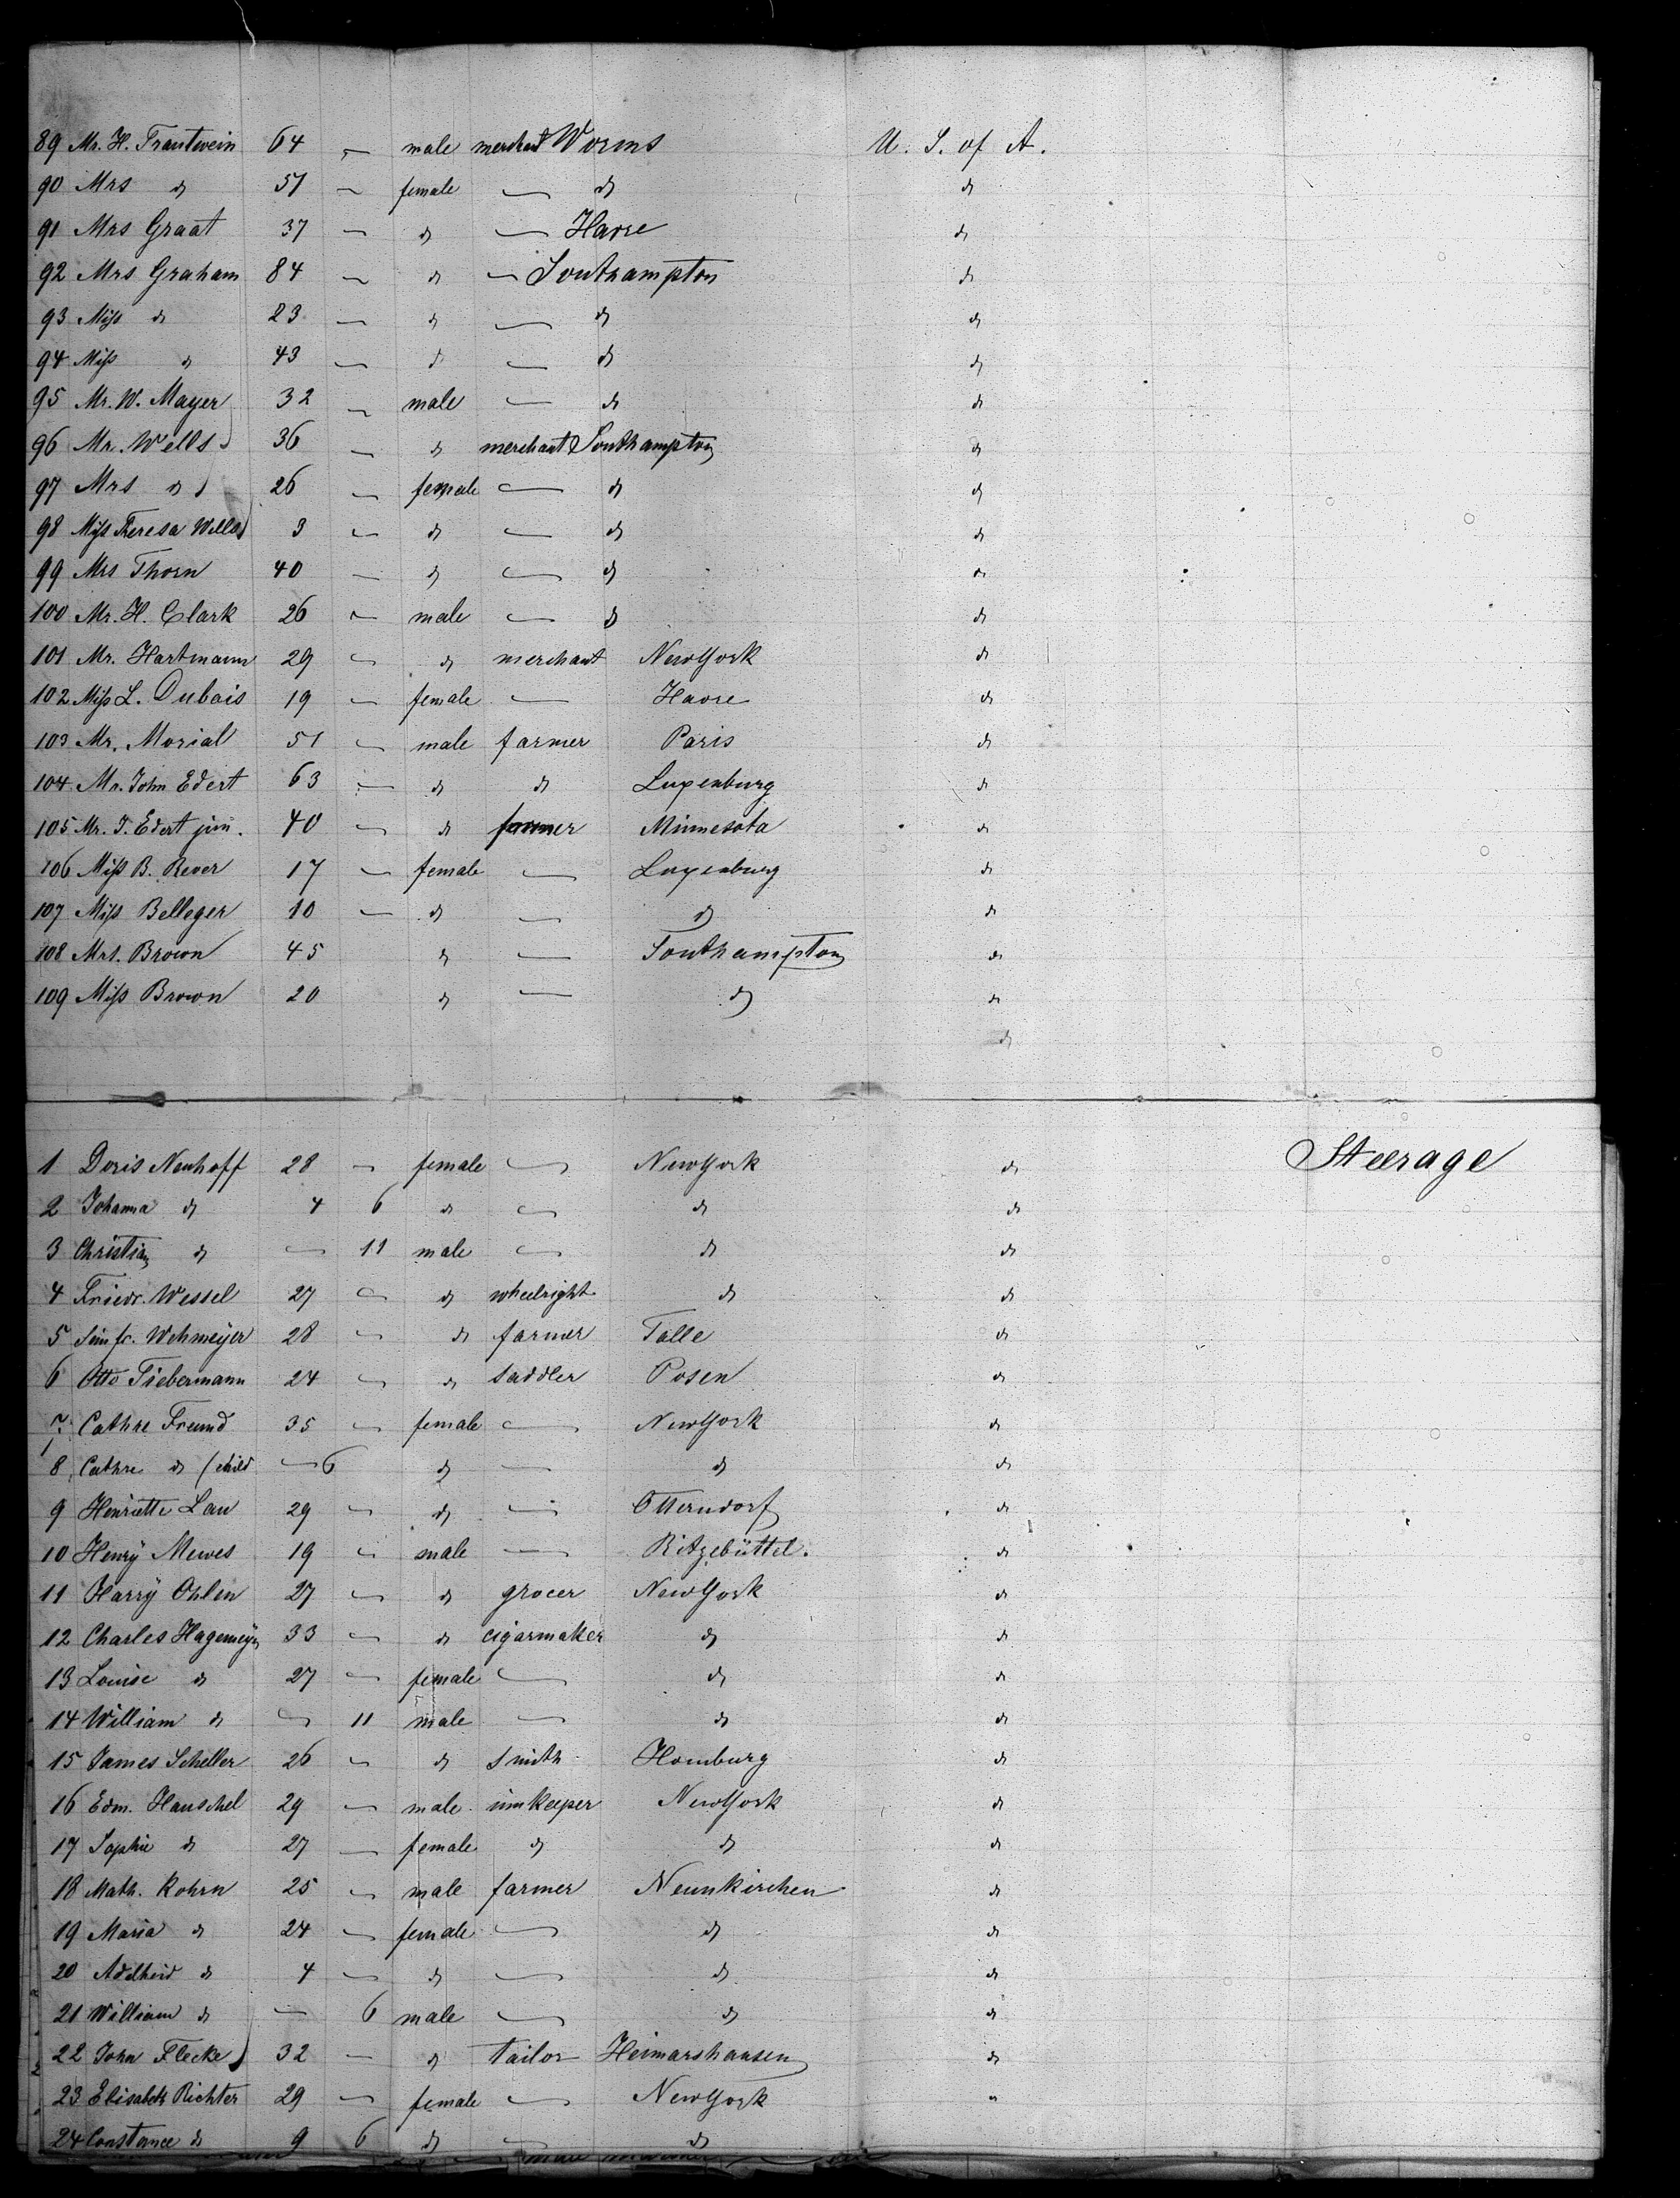 89 Mr. H. Trautwein 64 — male merchant Worms U. S. of A.
90 Mrs do 51 — female — do do
91 Mrs Graat 37 — do — Havre do
92 Mrs Graham 84 — do — Southampton do
93 Miss do 23 — do — do do
94 Miss do 43 — do — do do
95 Mr. W. Mayer 32 — male — do do
96 Mr. Wells 36 — do merchant Southampton do
97 Mrs do 26 — female — do do
98 Miss Theresa Wells 3 — do — do do
99 Mrs Thorn 40 — do — do do
100 Mr. H. Clark 26 — male — do do
101 Mr. Hartmann 29 — do merchant NewYork do
102 Miss L. Dubois 19 — female — Havre do
103 Mr. Morial 51 — male farmer Paris do
104 Mr. John Edert 63 — do do Luxenburg do
105 Mr. J. Edert jun. 40 — do farmer Minnesota do
106 Miss B. Rever 17 — female — Luxenburg do
107 Miss Belleger 10 — do — do do
108 Mrs. Brown 45 do — Southampton do
109 Miss Brown 20 do — do do
do
Steerage
1 Doris Neuhoff 28 — female — NewYork do
2 Johanna do 4 6 do — do do
3 Christian do — 11 male — do do
4 Friedr. Wessel 27 — do wheelright do do
5 Wehmeyer 28 — do farmer Talle do
6 Otto Tiebermann 24 — do saddler Posen do
7 Cathre Freund 35 — female — NewYork do
8 Cathre do (child — 6 do — do do
9 Henriette Lau 29 — do — Otterndorf do
10 Henry Mewes 19 — male — Ritzebüttel. do
11 Harry Ohlen 27 — do grocer NewYork do
12 Charles Hagemeyer 33 — do cigarmaker do do
13 Louise do 27 — female — do do
14 William do — 11 male — do do
15 James Scheller 26 — do smith Homburg do
16 Edm. Hauschel 29 — male innkeeper NewYork do
17 Sophie do 27 — female do do do
18 Math. Rohrn 25 — male farmer Neunkirchen do
19 Maria do 24 — female — do do
20 Adelheid do 4 — do — do do
21 William do — 6 male — do do
22 John Flecke 32 — do tailor Heimarshausen do
23 Elisabeth Richter 29 — female — NewYork "
24 Constance do 9 6 do — do